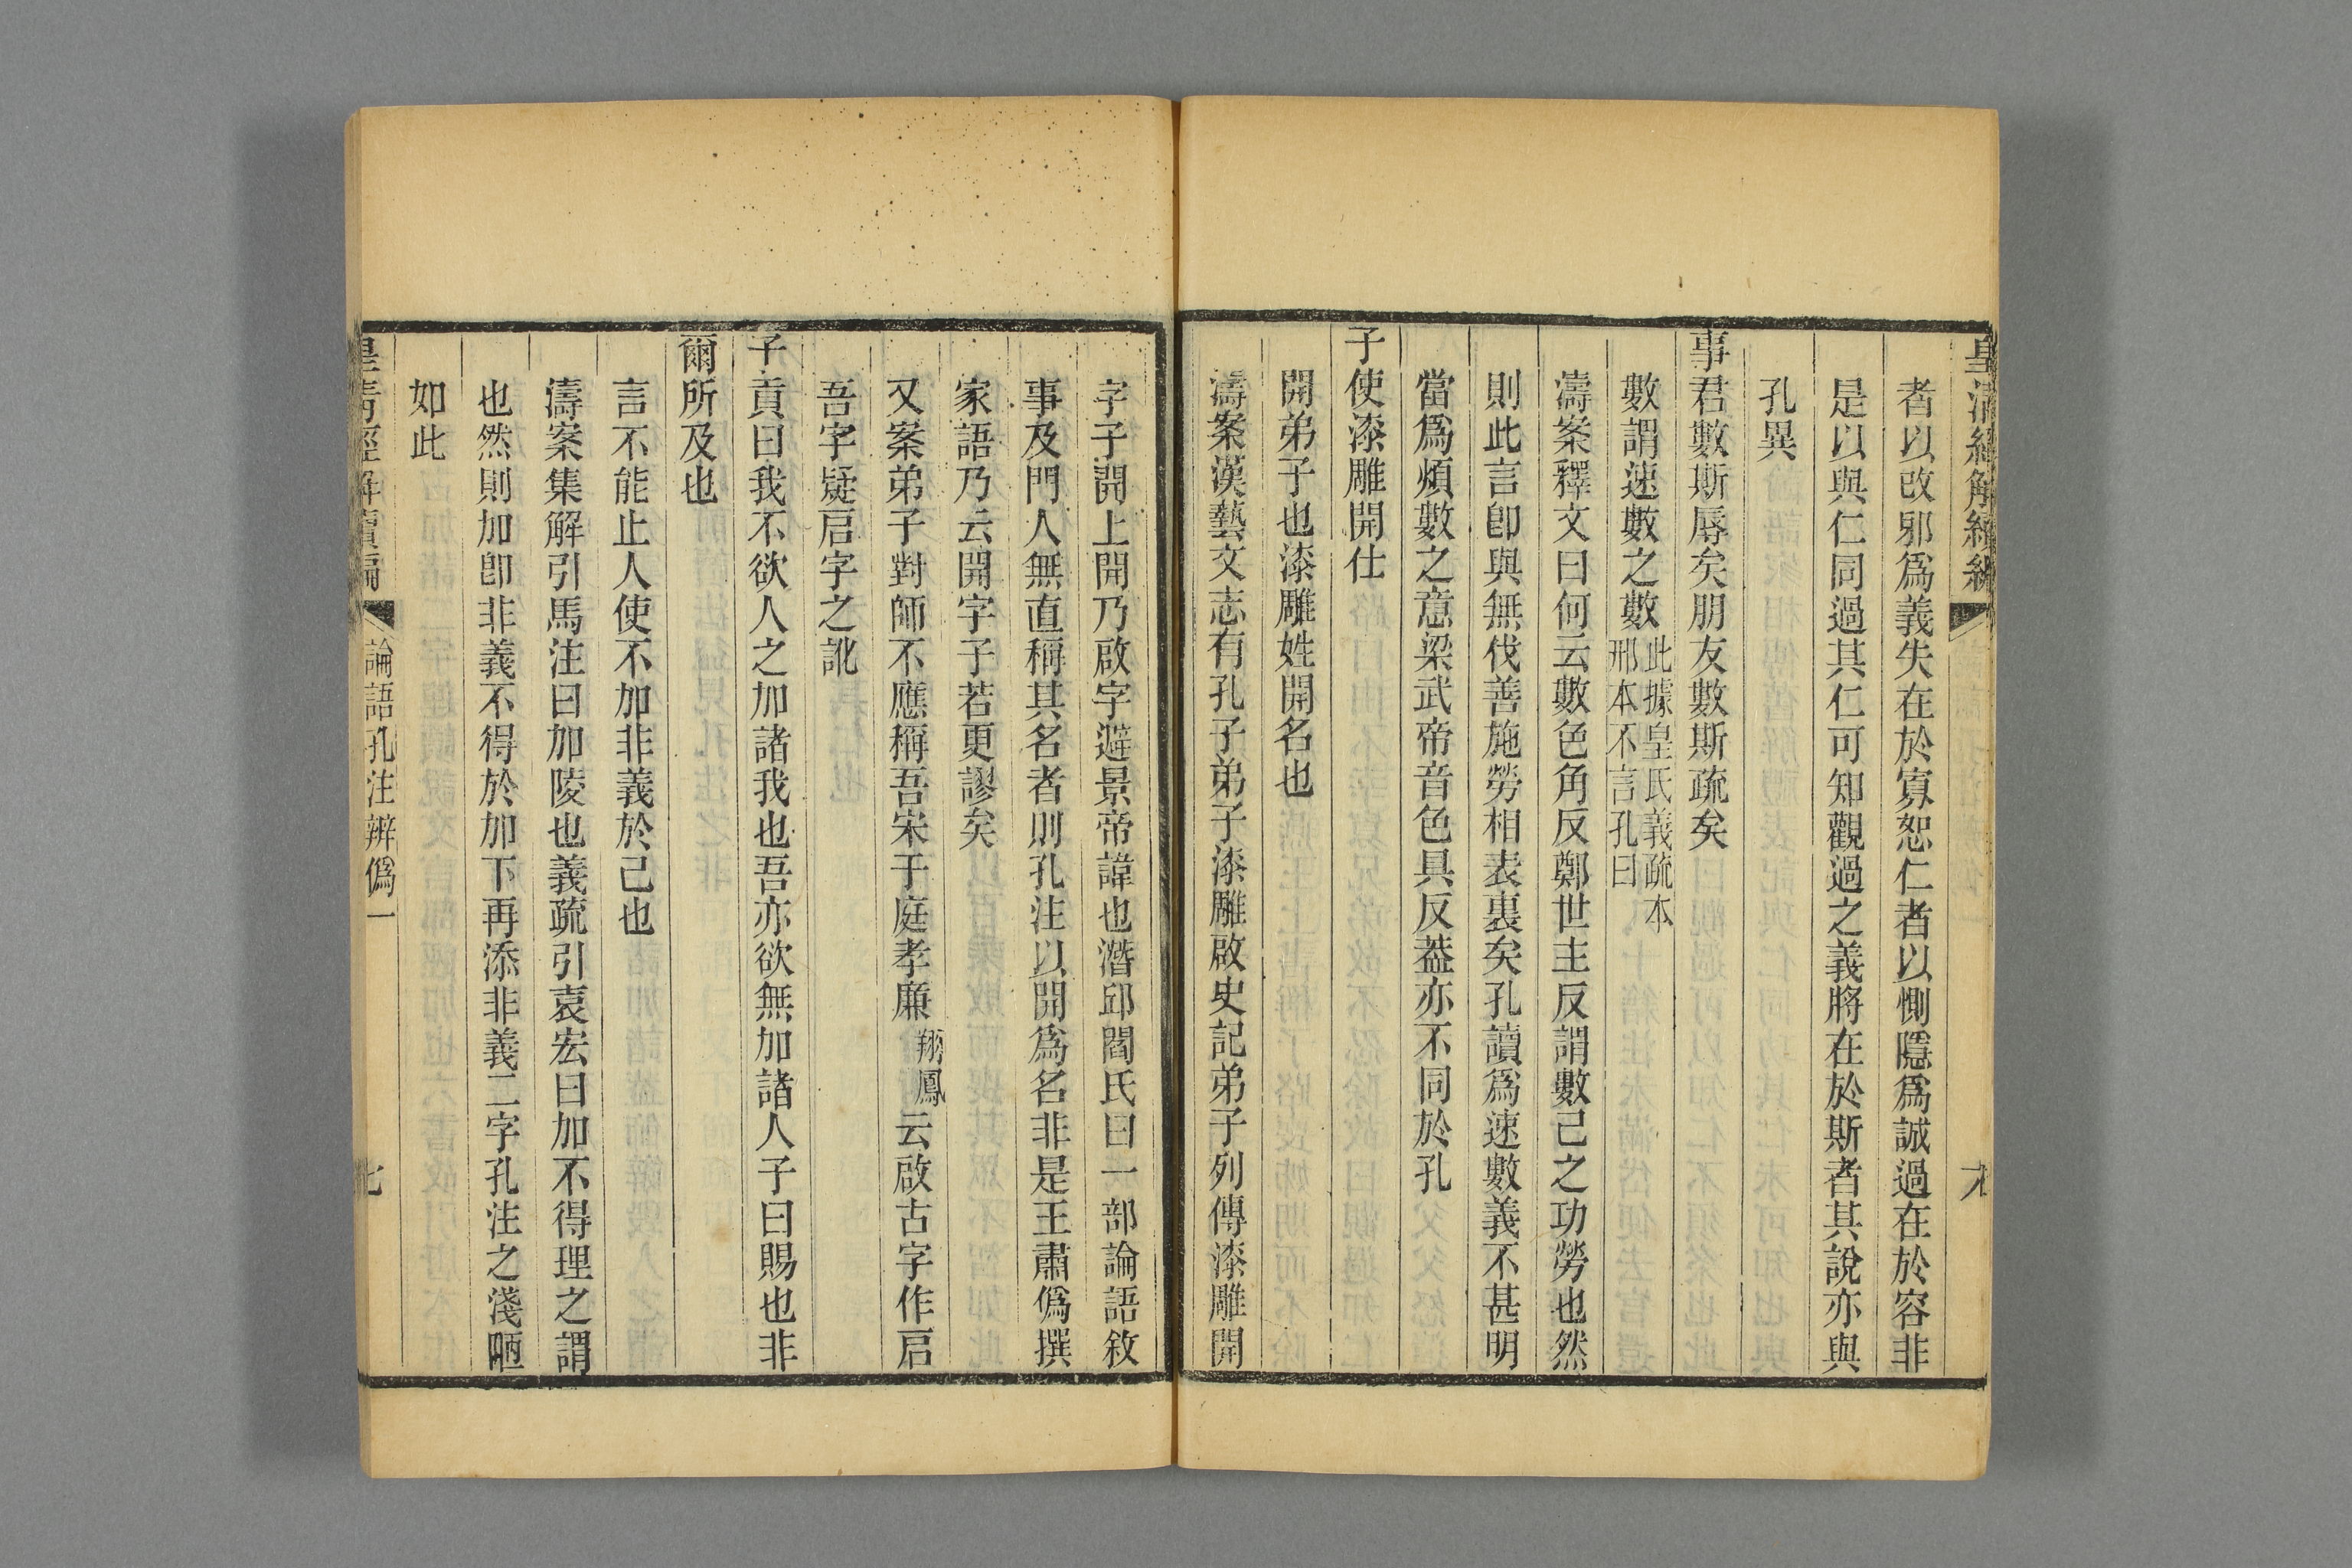 皇清經解續編
者以改邪爲義失在於寬恕仁者以惻隱爲誠過在於容非
是以與仁同過其仁可知觀過之義將在於斯者其說亦與
孔異
事君數斯辱矣朋友數斯疏矣
數謂速數之數此據皇氏義疏本邢本不言孔曰
濤案釋文曰何云數色角反鄭世主反謂數己之功勞也然
則此言卽與無伐善施勞相表裏矣孔讀爲速數義不甚明
當爲頻數之意梁武帝音色具反葢亦不同於孔
子使漆雕開仕
開弟子也漆雕姓開名也
濤案漢藝文志有孔子弟子漆雕啟史記弟子列傳漆雕開
字子開上開乃啟字避景帝諱也潛邱閻氏曰一部論語敘
事及門人無直稱其名者則孔注以開爲名非是王肅僞撰
家語乃云開字子若更謬矣
又案弟子對師不應稱吾宋于庭孝廉翔鳳云啟古字作启
吾字疑启字之訛
子貢曰我不欲人之加諸我也吾亦欲無加諸人子曰賜也非
爾所及也
言不能止人使不加非義於己也
濤案集解引馬注曰加陵也義疏引袁宏曰加不得理之謂
也然則加卽非義不得於加下再添非義二字孔注之淺陋
如此
皇清經解續編
論語孔注辨僞一